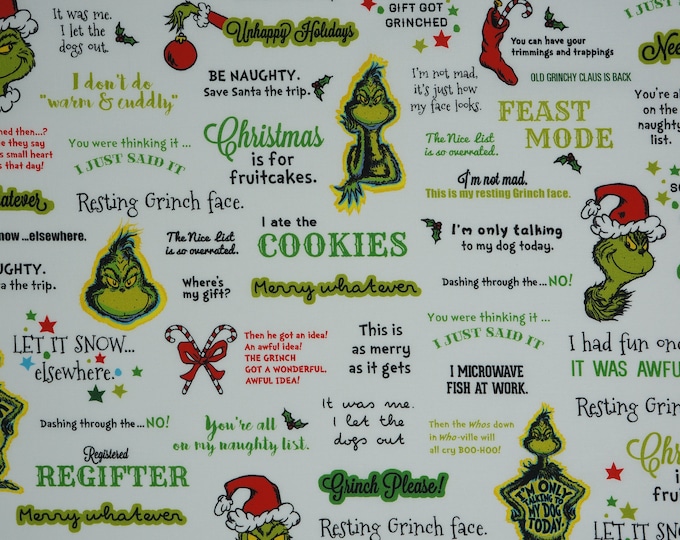 It was me.
I let the
dogs out.
Unhappy Holidays
GIFT GOT
GRINCHED
You can have your
trimmings and trappings
I JUST
I don't do
"warm & cuddly"
BE NAUGHTY.
Save Santa the trip.
I'm not mad,
it's just how
my face looks.
OLD GRINCHY CLAUS IS BACK
FEAST
MODE
You're
on the
naughty
list.
then...?
they say
small heart
that day!
You were thinking it ...
I JUST SAID IT
Christmas
is for
fruitcakes.
The Nice List
is so overrated.
I'm not mad.
This is my resting Grinch face.
Resting Grinch face.
...elsewhere.
The Nice List
is so overrated.
I ate the
COOKIES
I'm only talking
to my dog today.
the trip.
Where's
my gift?
Merry whatever
Dashing through the... NO!
LET IT SNOW...
elsewhere.
Then he got an idea!
An awful idea!
THE GRINCH
GOT A WONDERFUL,
AWFUL IDEA!
This is
as merry
as it gets
You were thinking it ...
I JUST SAID IT
I MICROWAVE
FISH AT WORK.
I had fun
IT WAS
Dashing through the... NO!
You're all
on my naughty list.
It was me.
I let the
dogs out
Then the Whos down
in Who-ville will
all cry BOO-HOO!
Resting Grinch
Registered
REGIFTER
Merry whatever
Grinch Please!
Resting Grinch face.
I'M ONLY
TALKING TO
MY DOG
TODAY.
is
LET IT SNOW